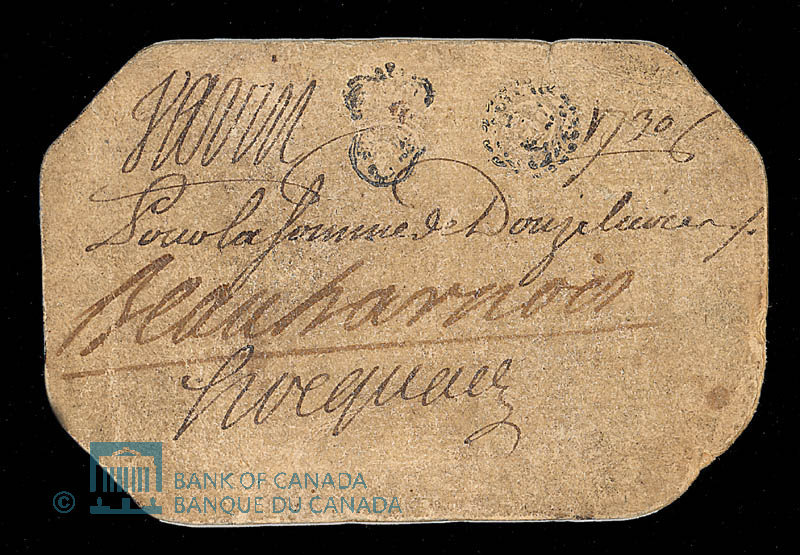 Varin 1730
Pour la Somme de Douze livres
Beauharnois
hocquart
© BANK OF CANADA
BANQUE DU CANADA